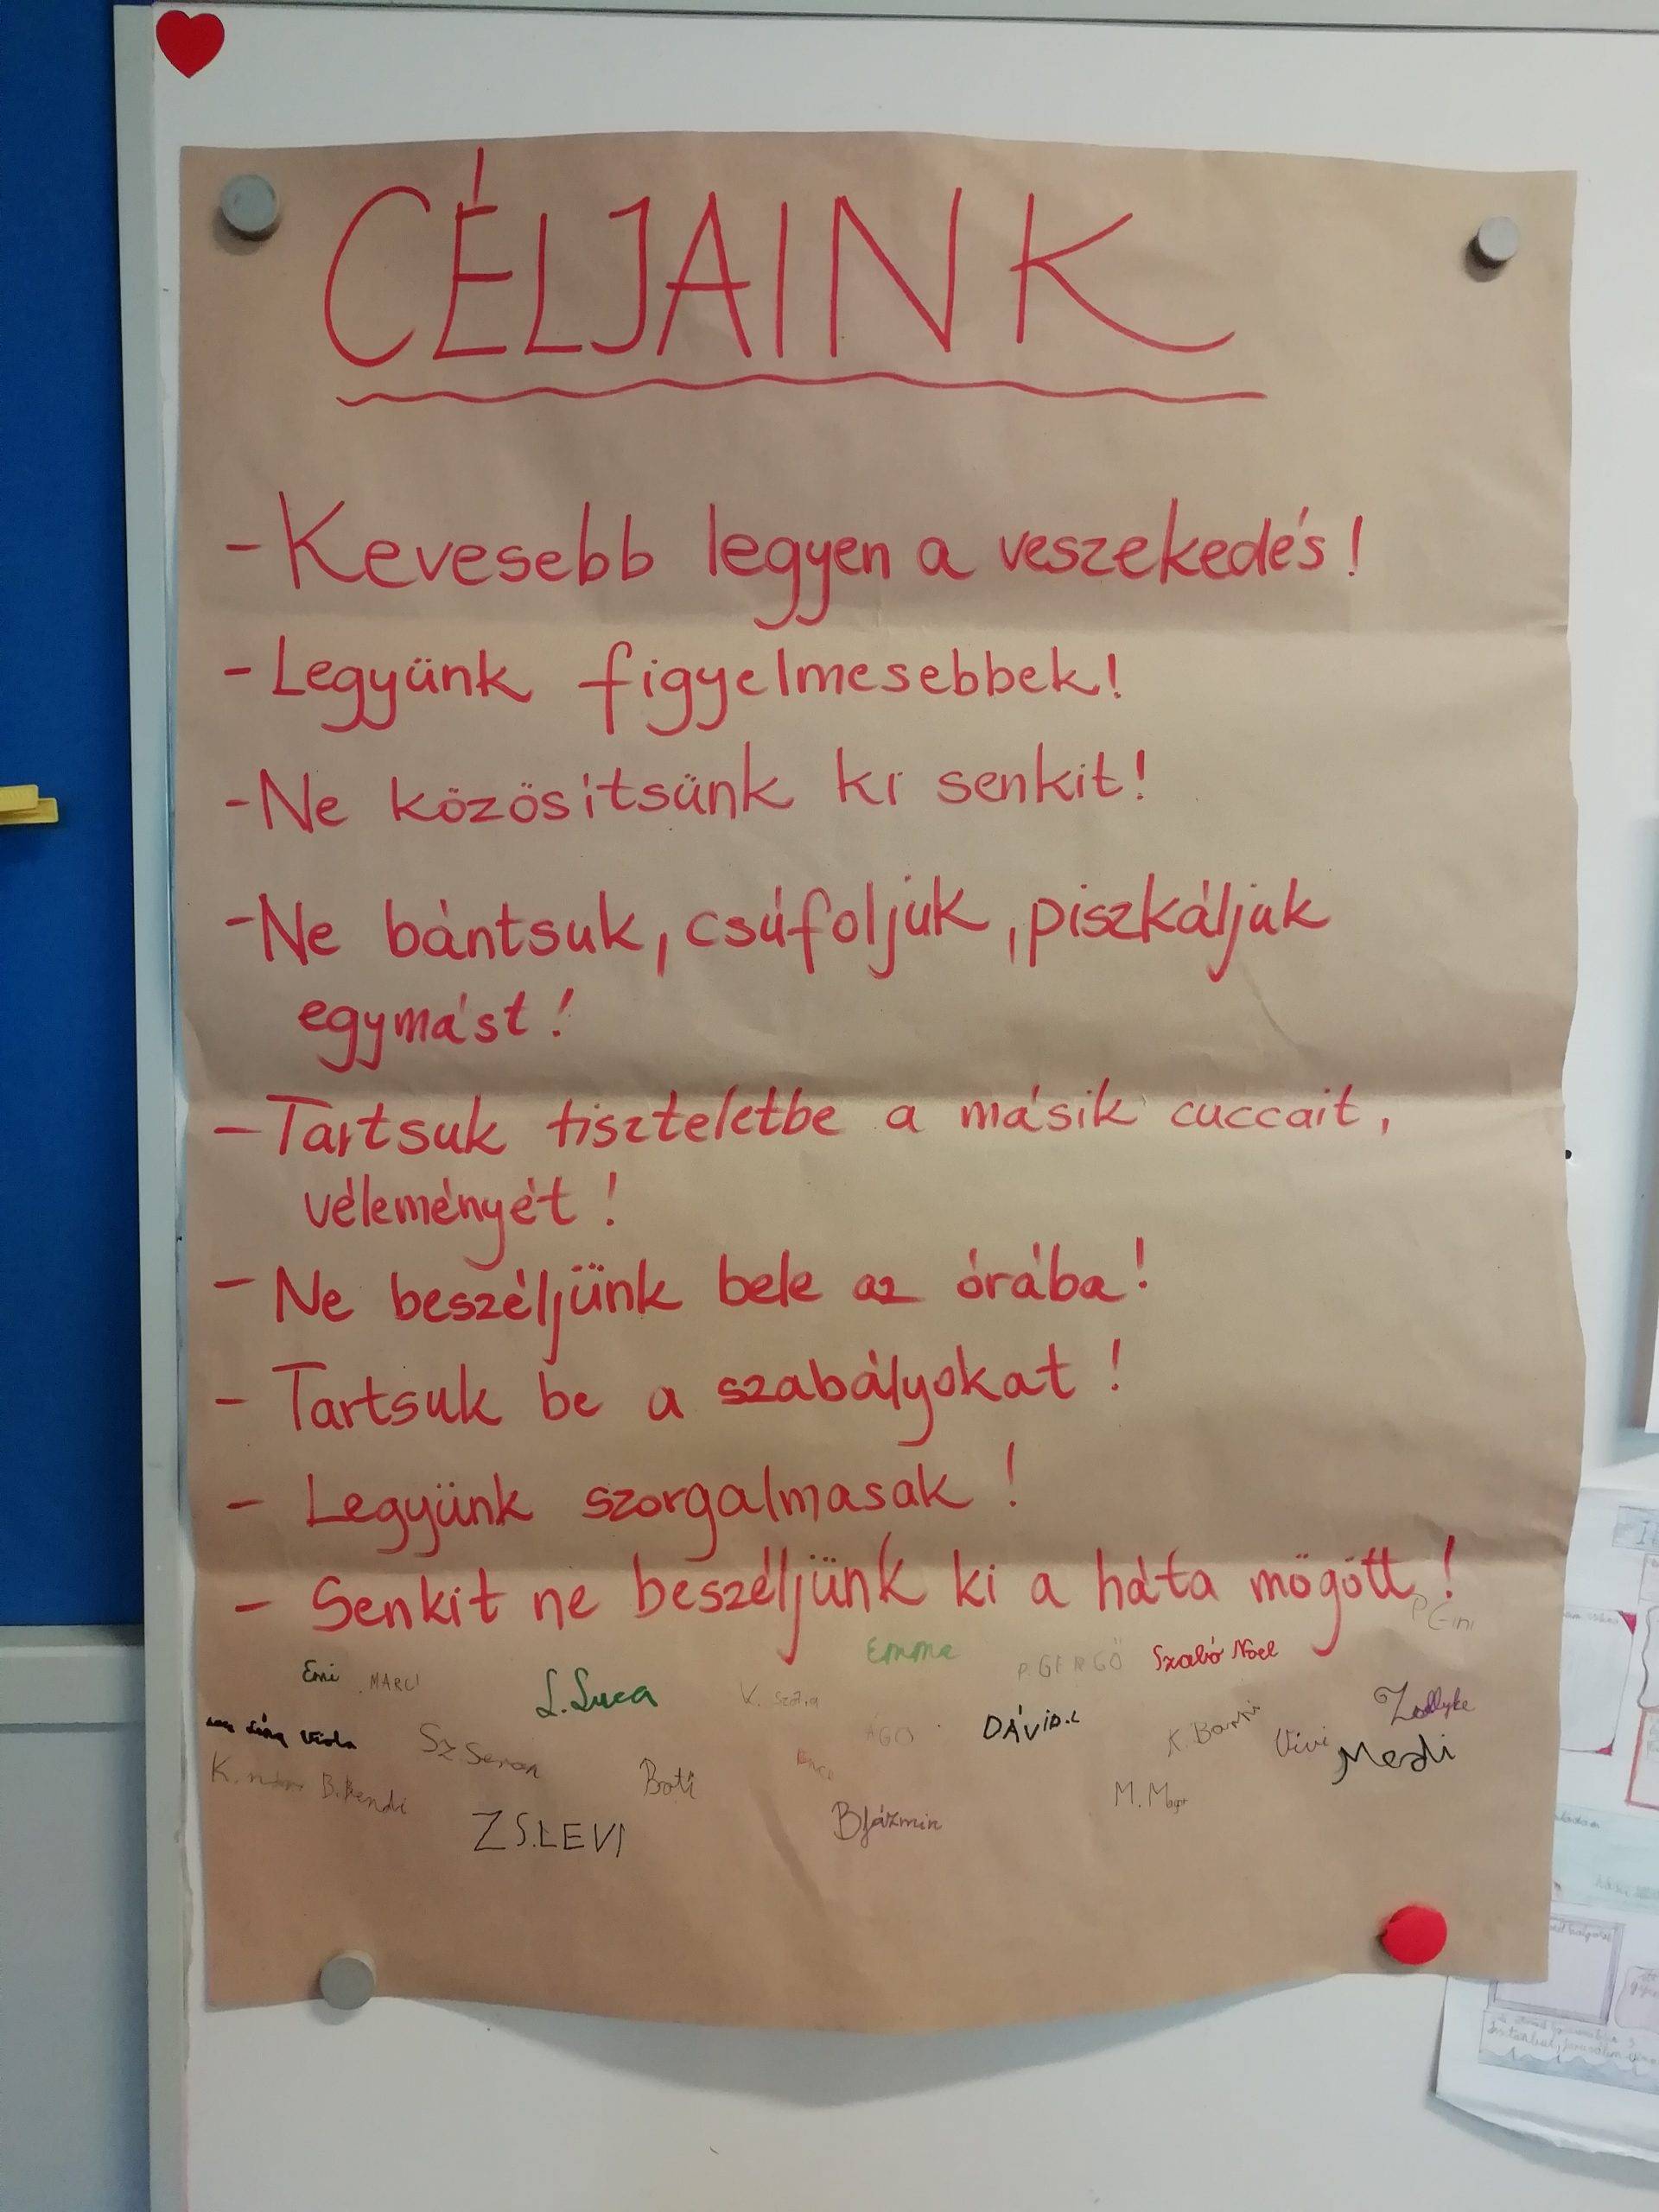 CÉLJAINK
- Kevesebb legyen a veszekedés!
- Legyünk figyelmesebbek!
- Ne közösítsünk ki senkit!
- Ne bántsuk, csúfoljuk, piszkáljuk
egymást!
- Tartsuk tiszteletbe a másik cuccait,
véleményét!
- Ne beszéljünk bele az órába!
- Tartsuk be a szabályokat!
- Legyünk szorgalmasak!
- Senkit ne beszéljünk ki a háta mögött!
Emma P. GERGŐ Szabó Noel
Emi MARCI L. Luca
Viola DÁVID.L Vivi
B. Bendi Boti Medi
ZS. LEVI